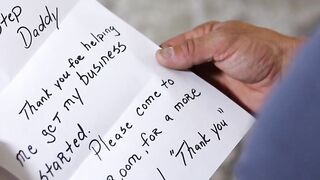 Step
Daddy
Thank you for helping
me get my business
started.
Please come to
room, for a more
"Thank you"